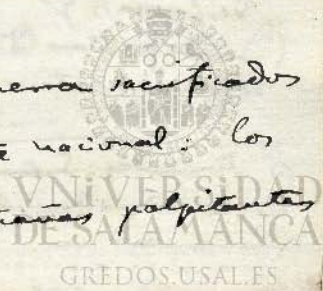 sacrificados
nacional: los
palpitantes
VNiVERSiDAD
DE SALAMANCA
GREDOS.USAL.ES